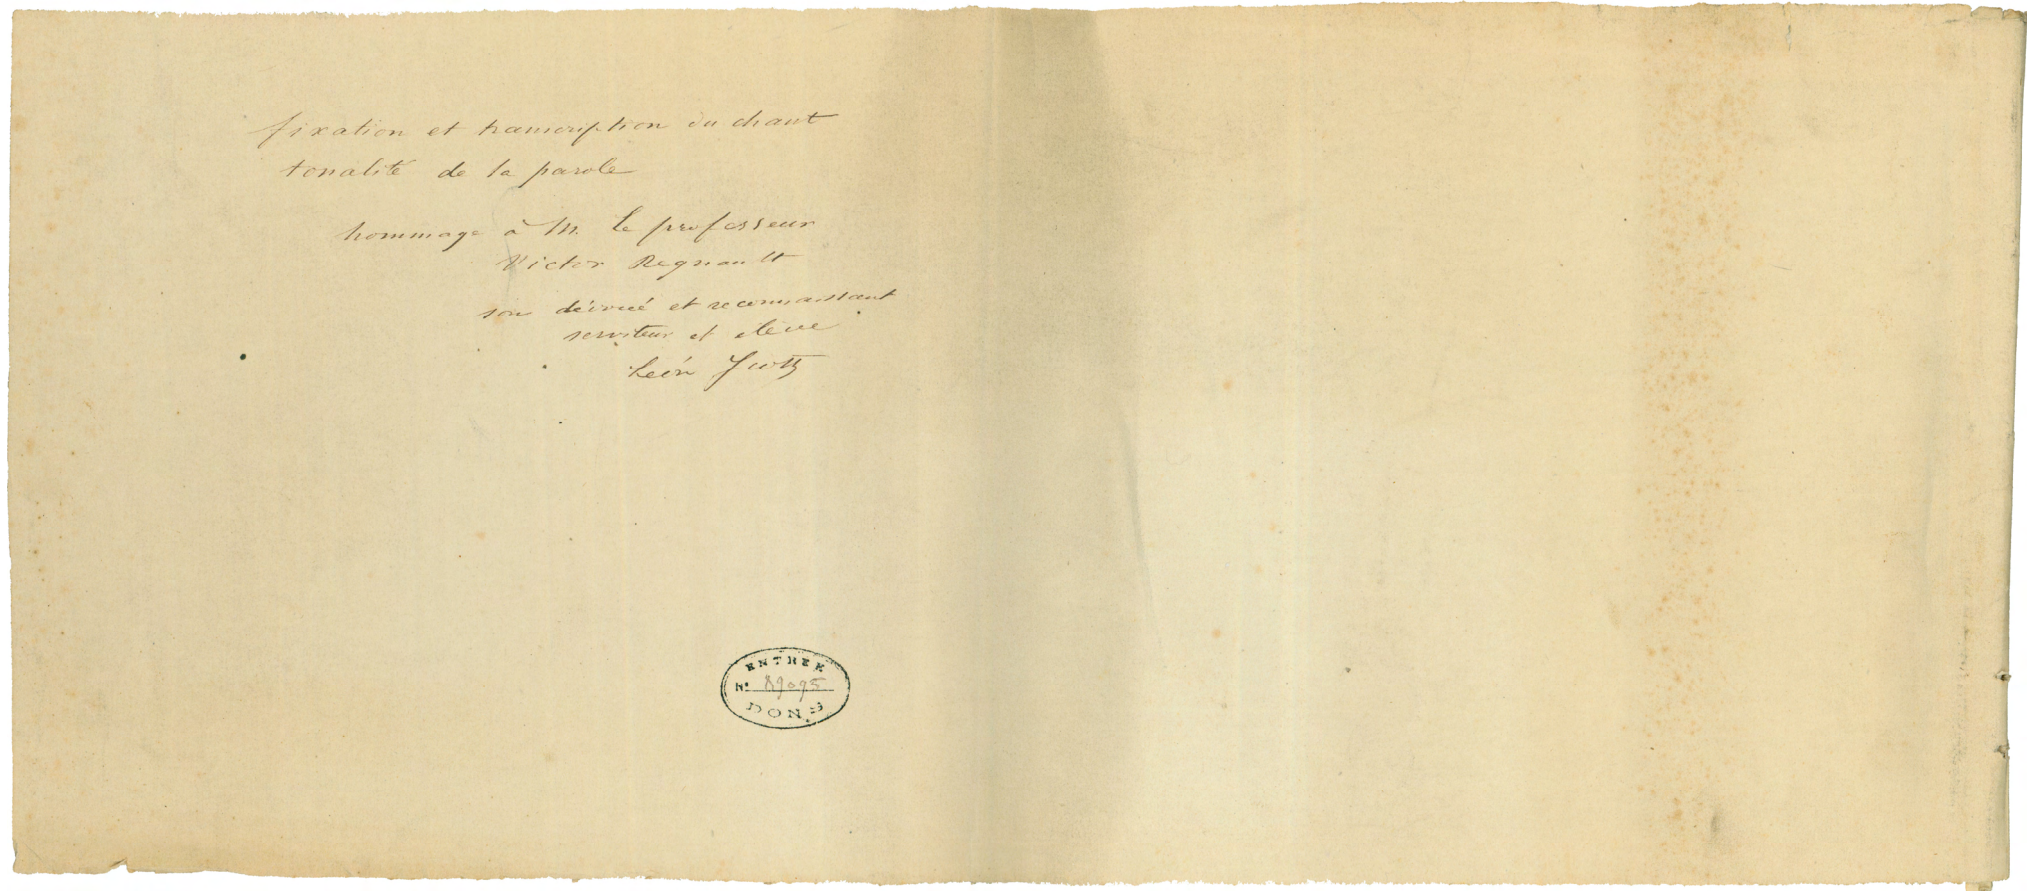 fixation et transcription du chant
tonalité de la parole
hommage à M. le professeur
Victor Regnault
son dévoué et reconnaissant
serviteur et élève
Léon Scott
ENTRÉE
No. 89095
DONS